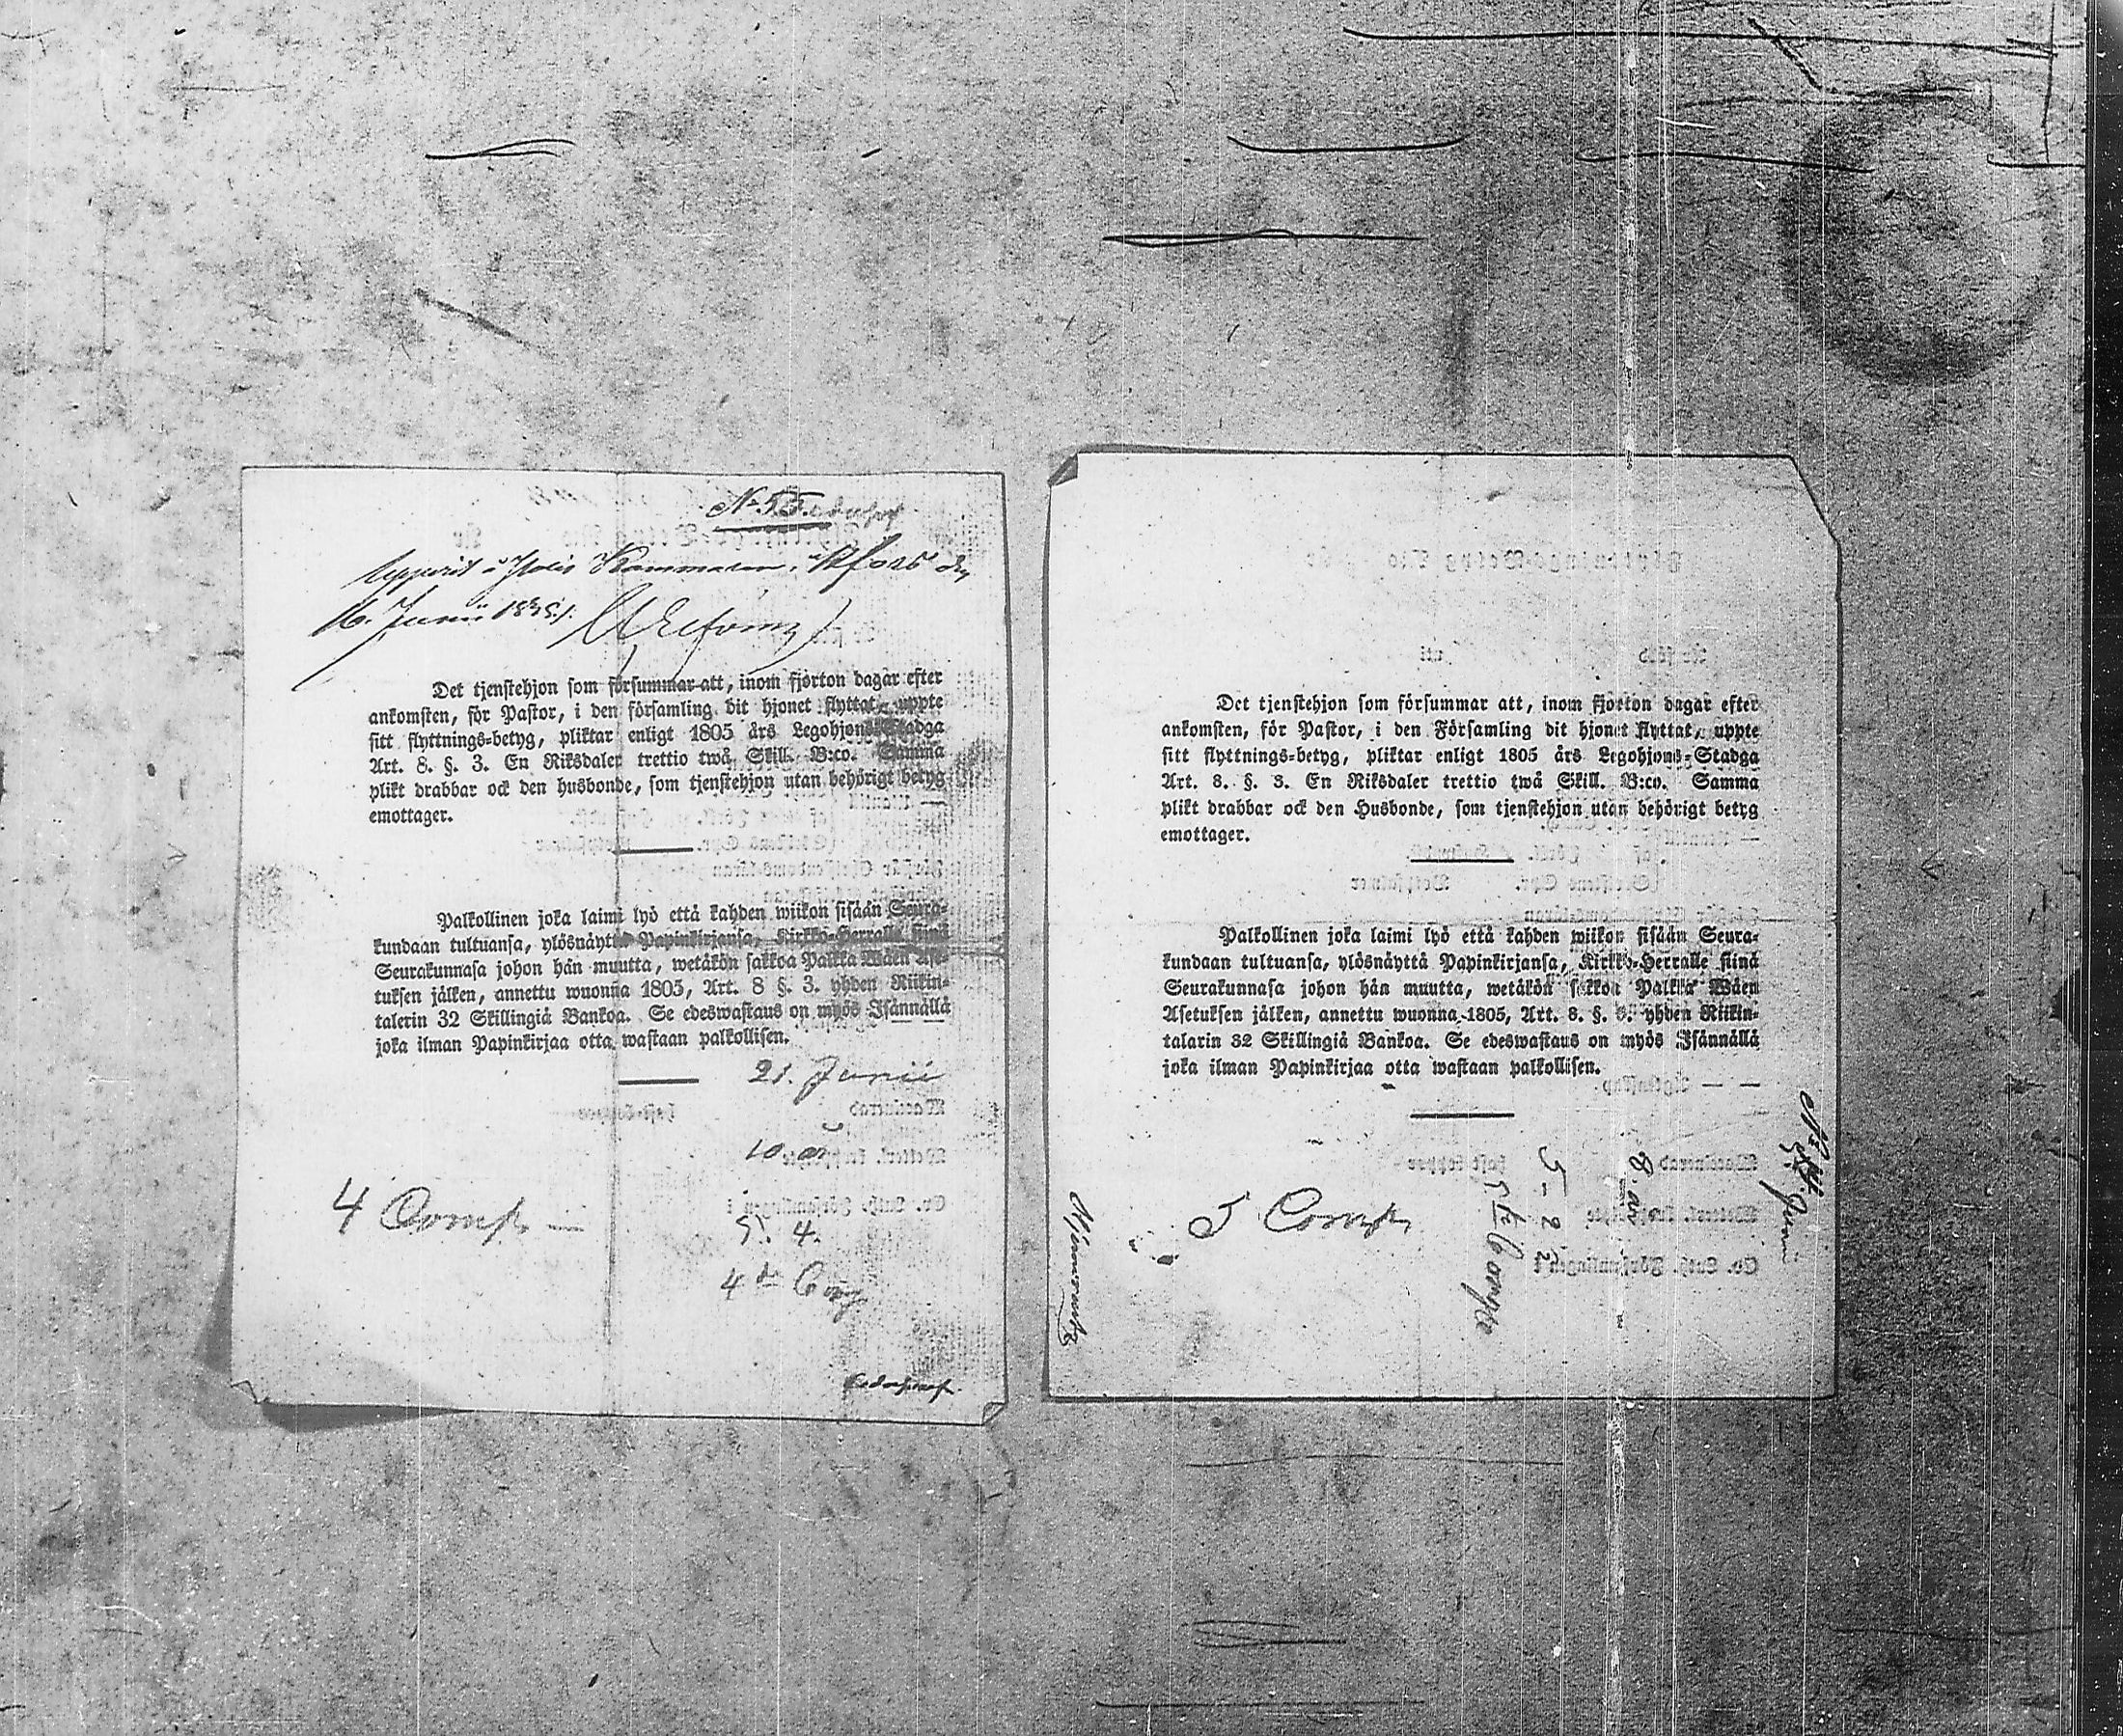 No 55.
Uppvist å Polis Kammaren i Hfors den
16. Junii 1845.
Det tjenstehjon som försummar att, inom fjorton dagar efter
ankomsten, för Pastor, i den församling dit hjonet flyttat, uppte
sitt flyttnings-betyg, pliktar enligt 1805 års Legohjons-Stadga
Art. 8. §. 3. En Riksdaler trettio twå Skill. B:co. Samma
plikt drabbar ock den husbonde, som tjenstehjon utan behörigt betyg
emottager.
Palkollinen joka laimi lyö että kahden wiikon sisään Seura-
kundaan tultuansa, ylösnäyttä Papinkirjansa, Kirkko-Herralle siinä
Seurakunnasa johon hän muutta, wetäkön sakkoa Palkka Wäen Ase-
tuksen jälken, annettu wuonna 1805, Art. 8 §. 3. yhden Riikin-
talerin 32 Skillingiä Bankoa. Se edeswastaus on myös Isännällä
joka ilman Papinkirjaa otta wastaan palkollisen.
21. Junii
10. år
4 Comp.
5. 4.
4de Comp
Det tjenstehjon som försummar att, inom fjorton dagar efter
ankomsten, för Pastor, i den Församling dit hjonet flyttat, uppte
sitt flyttnings-betyg, pliktar enligt 1805 års Legohjons-Stadga
Art. 8. §. 3. En Riksdaler trettio twå Skill. B:co. Samma
plikt drabbar ock den Husbonde, som tjenstehjon utan behörigt betyg
emottager.
Palkollinen joka laimi lyö että kahden wiikon sisään Seura-
kundaan tultuansa, ylösnäyttä Papinkirjansa, Kirkko-Herralle siinä
Seurakunnasa johon hän muutta, wetäkön sakkoa Palkka Wäen
Asetuksen jälken, annettu wuonna 1805, Art. 8. §. 3. yhden Riikin-
talarin 32 Skillingiä Bankoa. Se edeswastaus on myös Isännällä
joka ilman Papinkirjaa otta wastaan palkollisen.
5 Comp.
Junii
8. år
5 - 2
5te Compe